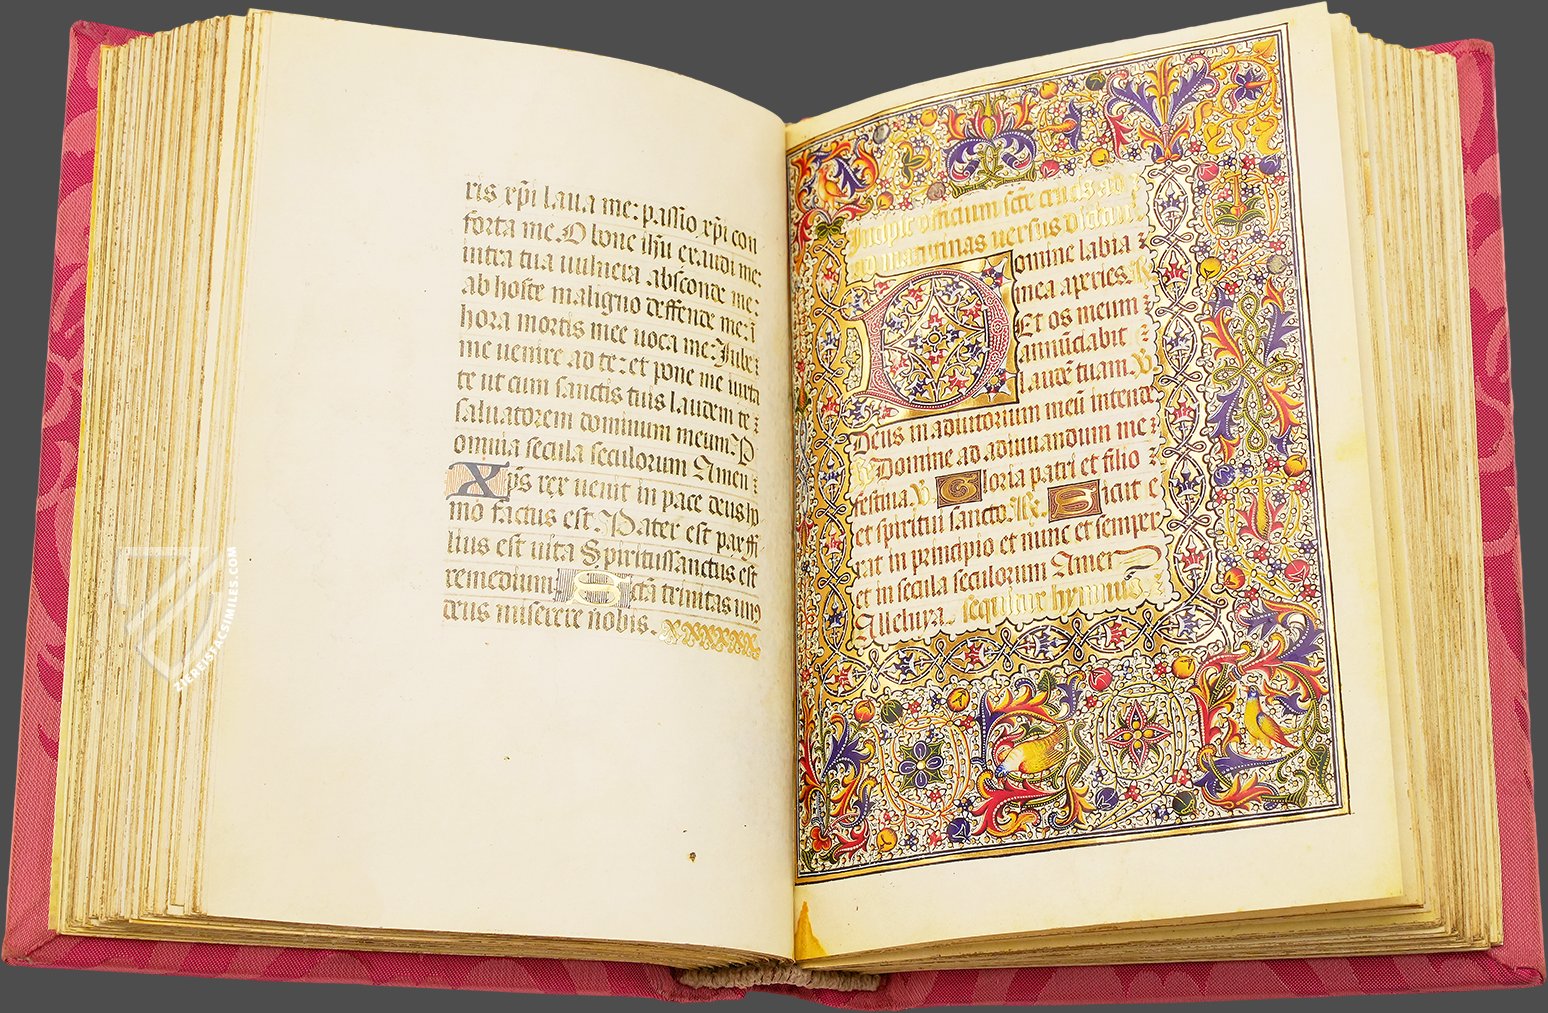 ris xp̄i laua me: passio xp̄i con
forta me. O bone ih̄u exaudi me:
intra tua uulnera absconde me:
ab hoste maligno deffende me: ī
hora mortis mee uoca me: Jube
me uenire ad te: et pone me iuxta
te ut cum sanctis tuis laudem te
saluatorem dominum meum: P
omnia secula seculorum Amen
xp̄s rex uenit in pace deus ho
mo factus est. Pater est par fi
lius est uita Spiritussanctus est
remedium Sctā trinitas un9
deus miserere nobis.
ZIEREISFACSIMILES.COM
Incipit officium sctē crucis ad
ad matutinas uersus
Domine labia
mea aperies. R
Et os meum
annūciabit
laudē tuam. V
Deus in adiutorium meū intende
R Domine ad adiuuandum me
festina V. Gloria patri et filio
et spiritui sancto. R. Sicut e
rat in principio et nunc et semper
et in secula seculorum Amen
Alleluya. sequitur hymnus